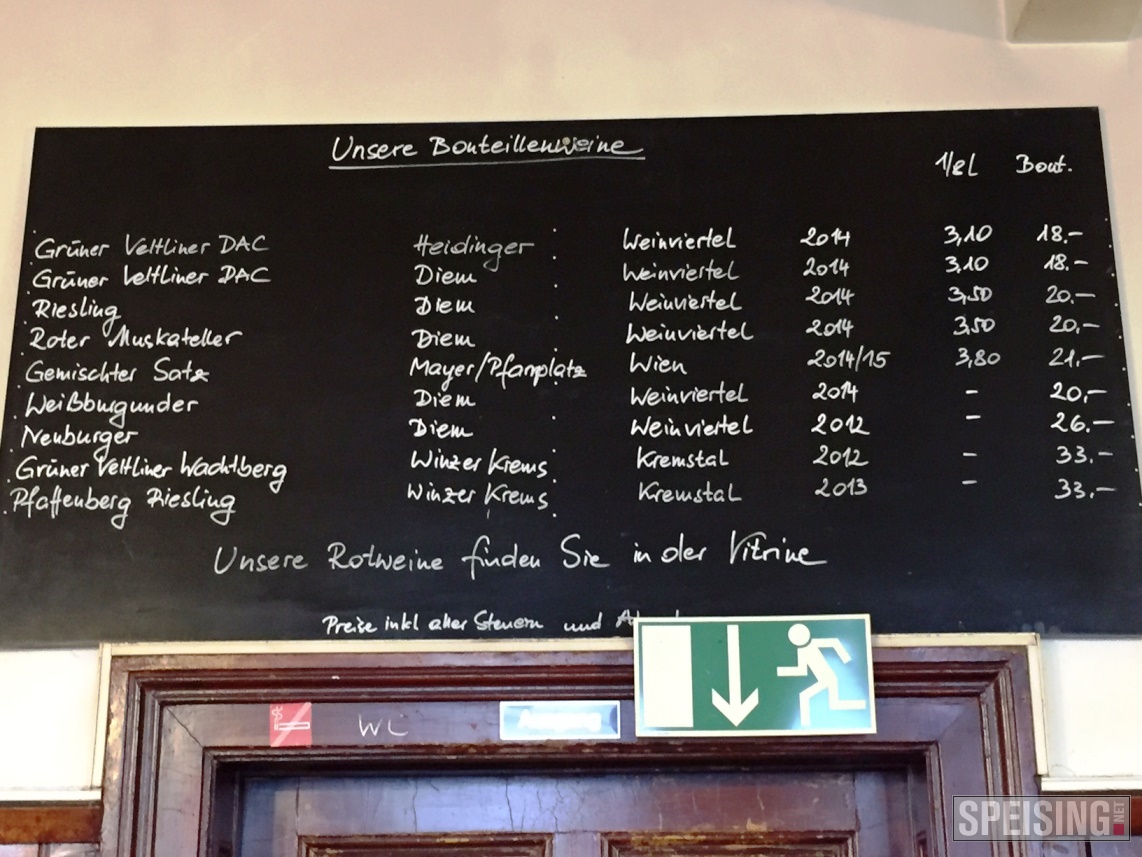 Unsere Bouteillenweine
1/8l Bout.
Grüner Veltliner DAC Heidinger Weinviertel 2014 3,10 18.-
Grüner Veltliner DAC Diem Weinviertel 2014 3,10 18.-
Riesling Diem Weinviertel 2014 3,50 20.-
Roter Muskateller Diem Weinviertel 2014 3,50 20.-
Gemischter Satz Mayer/Pfarrplatz Wien 2014/15 3,80 21.-
Weißburgunder Diem Weinviertel 2014 - 20.-
Neuburger Diem Weinviertel 2012 - 26.-
Grüner Veltliner Wachtberg Winzer Krems Kremstal 2012 - 33.-
Pfaffenberg Riesling Winzer Krems Kremstal 2013 - 33.-
Unsere Rotweine finden Sie in der Vitrine
Preise inkl aller Steuern und
WC
SPEISING.NET